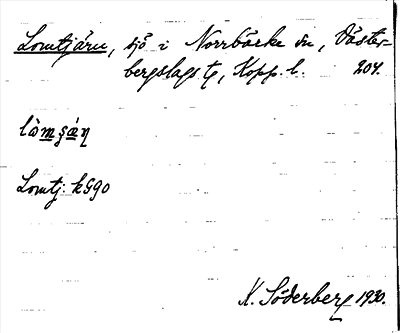 Lomtjärn, sjö i Norrbärke sn, Väster-
bergslags tg, Kopp. l. 204.
Lomtj: k590
K. Söderberg 1930.